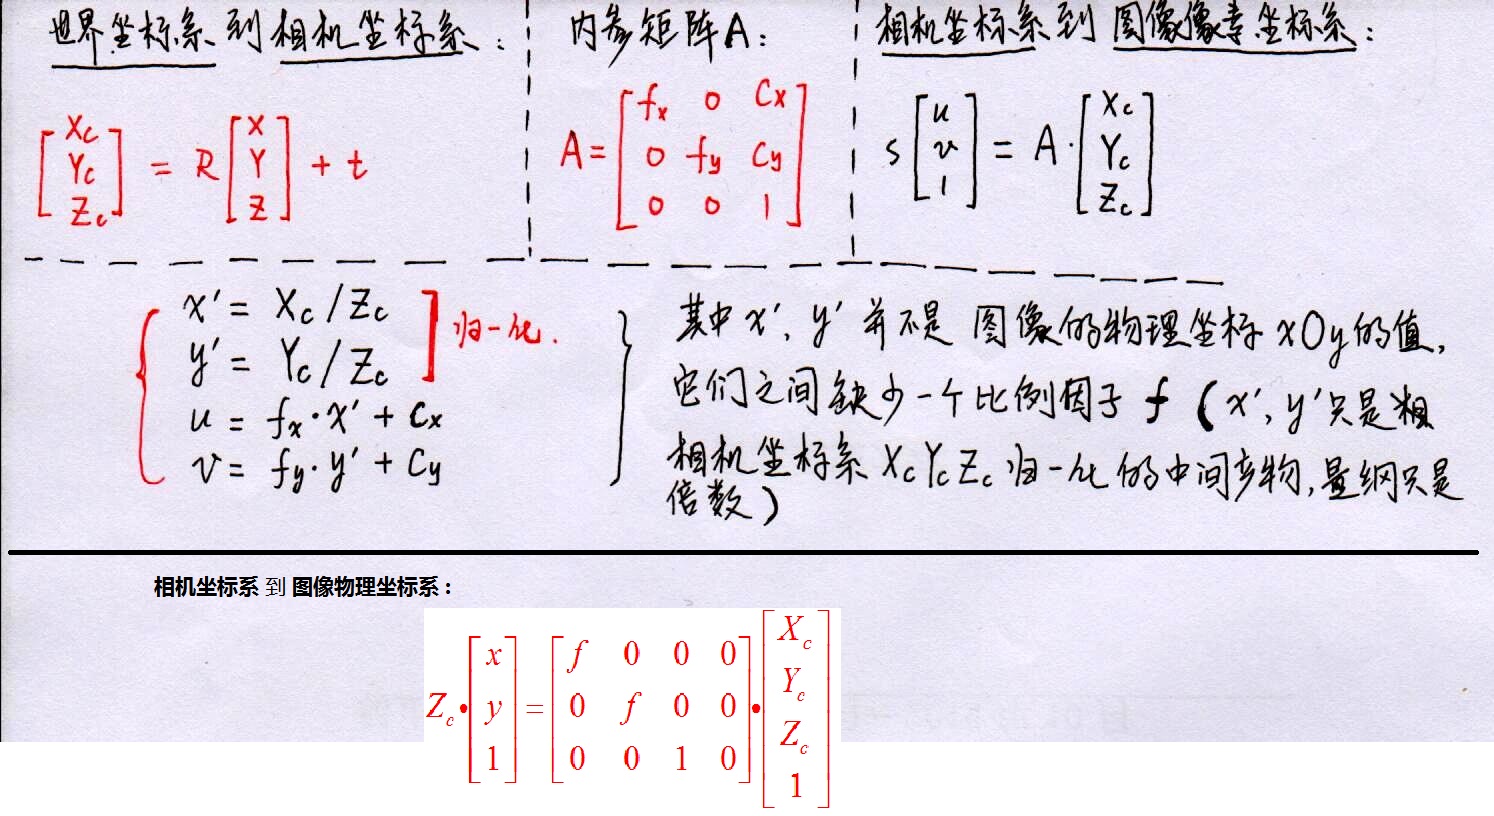 世界坐标系到相机坐标系：
[Xc Yc Zc] = R [X Y Z] + t
内参矩阵A：
A = [fx 0 Cx
0 fy Cy
0 0 1]
相机坐标系到图像像素坐标系：
s [u v 1] = A · [Xc Yc Zc]
x′ = Xc / Zc
y′ = Yc / Zc
归一化.
u = fx · x′ + Cx
v = fy · y′ + Cy
其中 x′, y′ 并不是 图像的物理坐标 xOy 的值,
它们之间缺少一个比例因子 f ( x′, y′ 只是
相机坐标系 XcYcZc 归一化的中间产物, 量纲只是
倍数 )
相机坐标系 到 图像物理坐标系：
Zc • [x y 1] = [f 0 0 0
0 f 0 0
0 0 1 0] • [Xc Yc Zc 1]